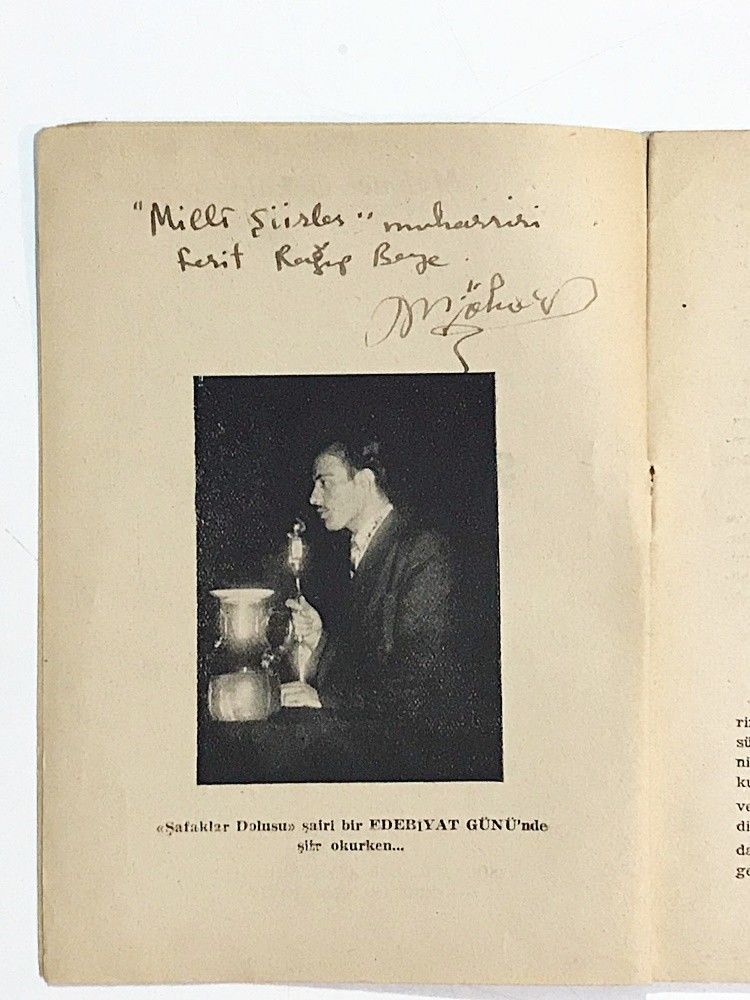 "Millî Şiirler" muharriri
Ferit Ragıp Beye.
«Şafaklar Dolusu» şairi bir EDEBİYAT GÜNÜ'nde
şiir okurken...
ri
sü
ni
ku
ve
di
da
ge